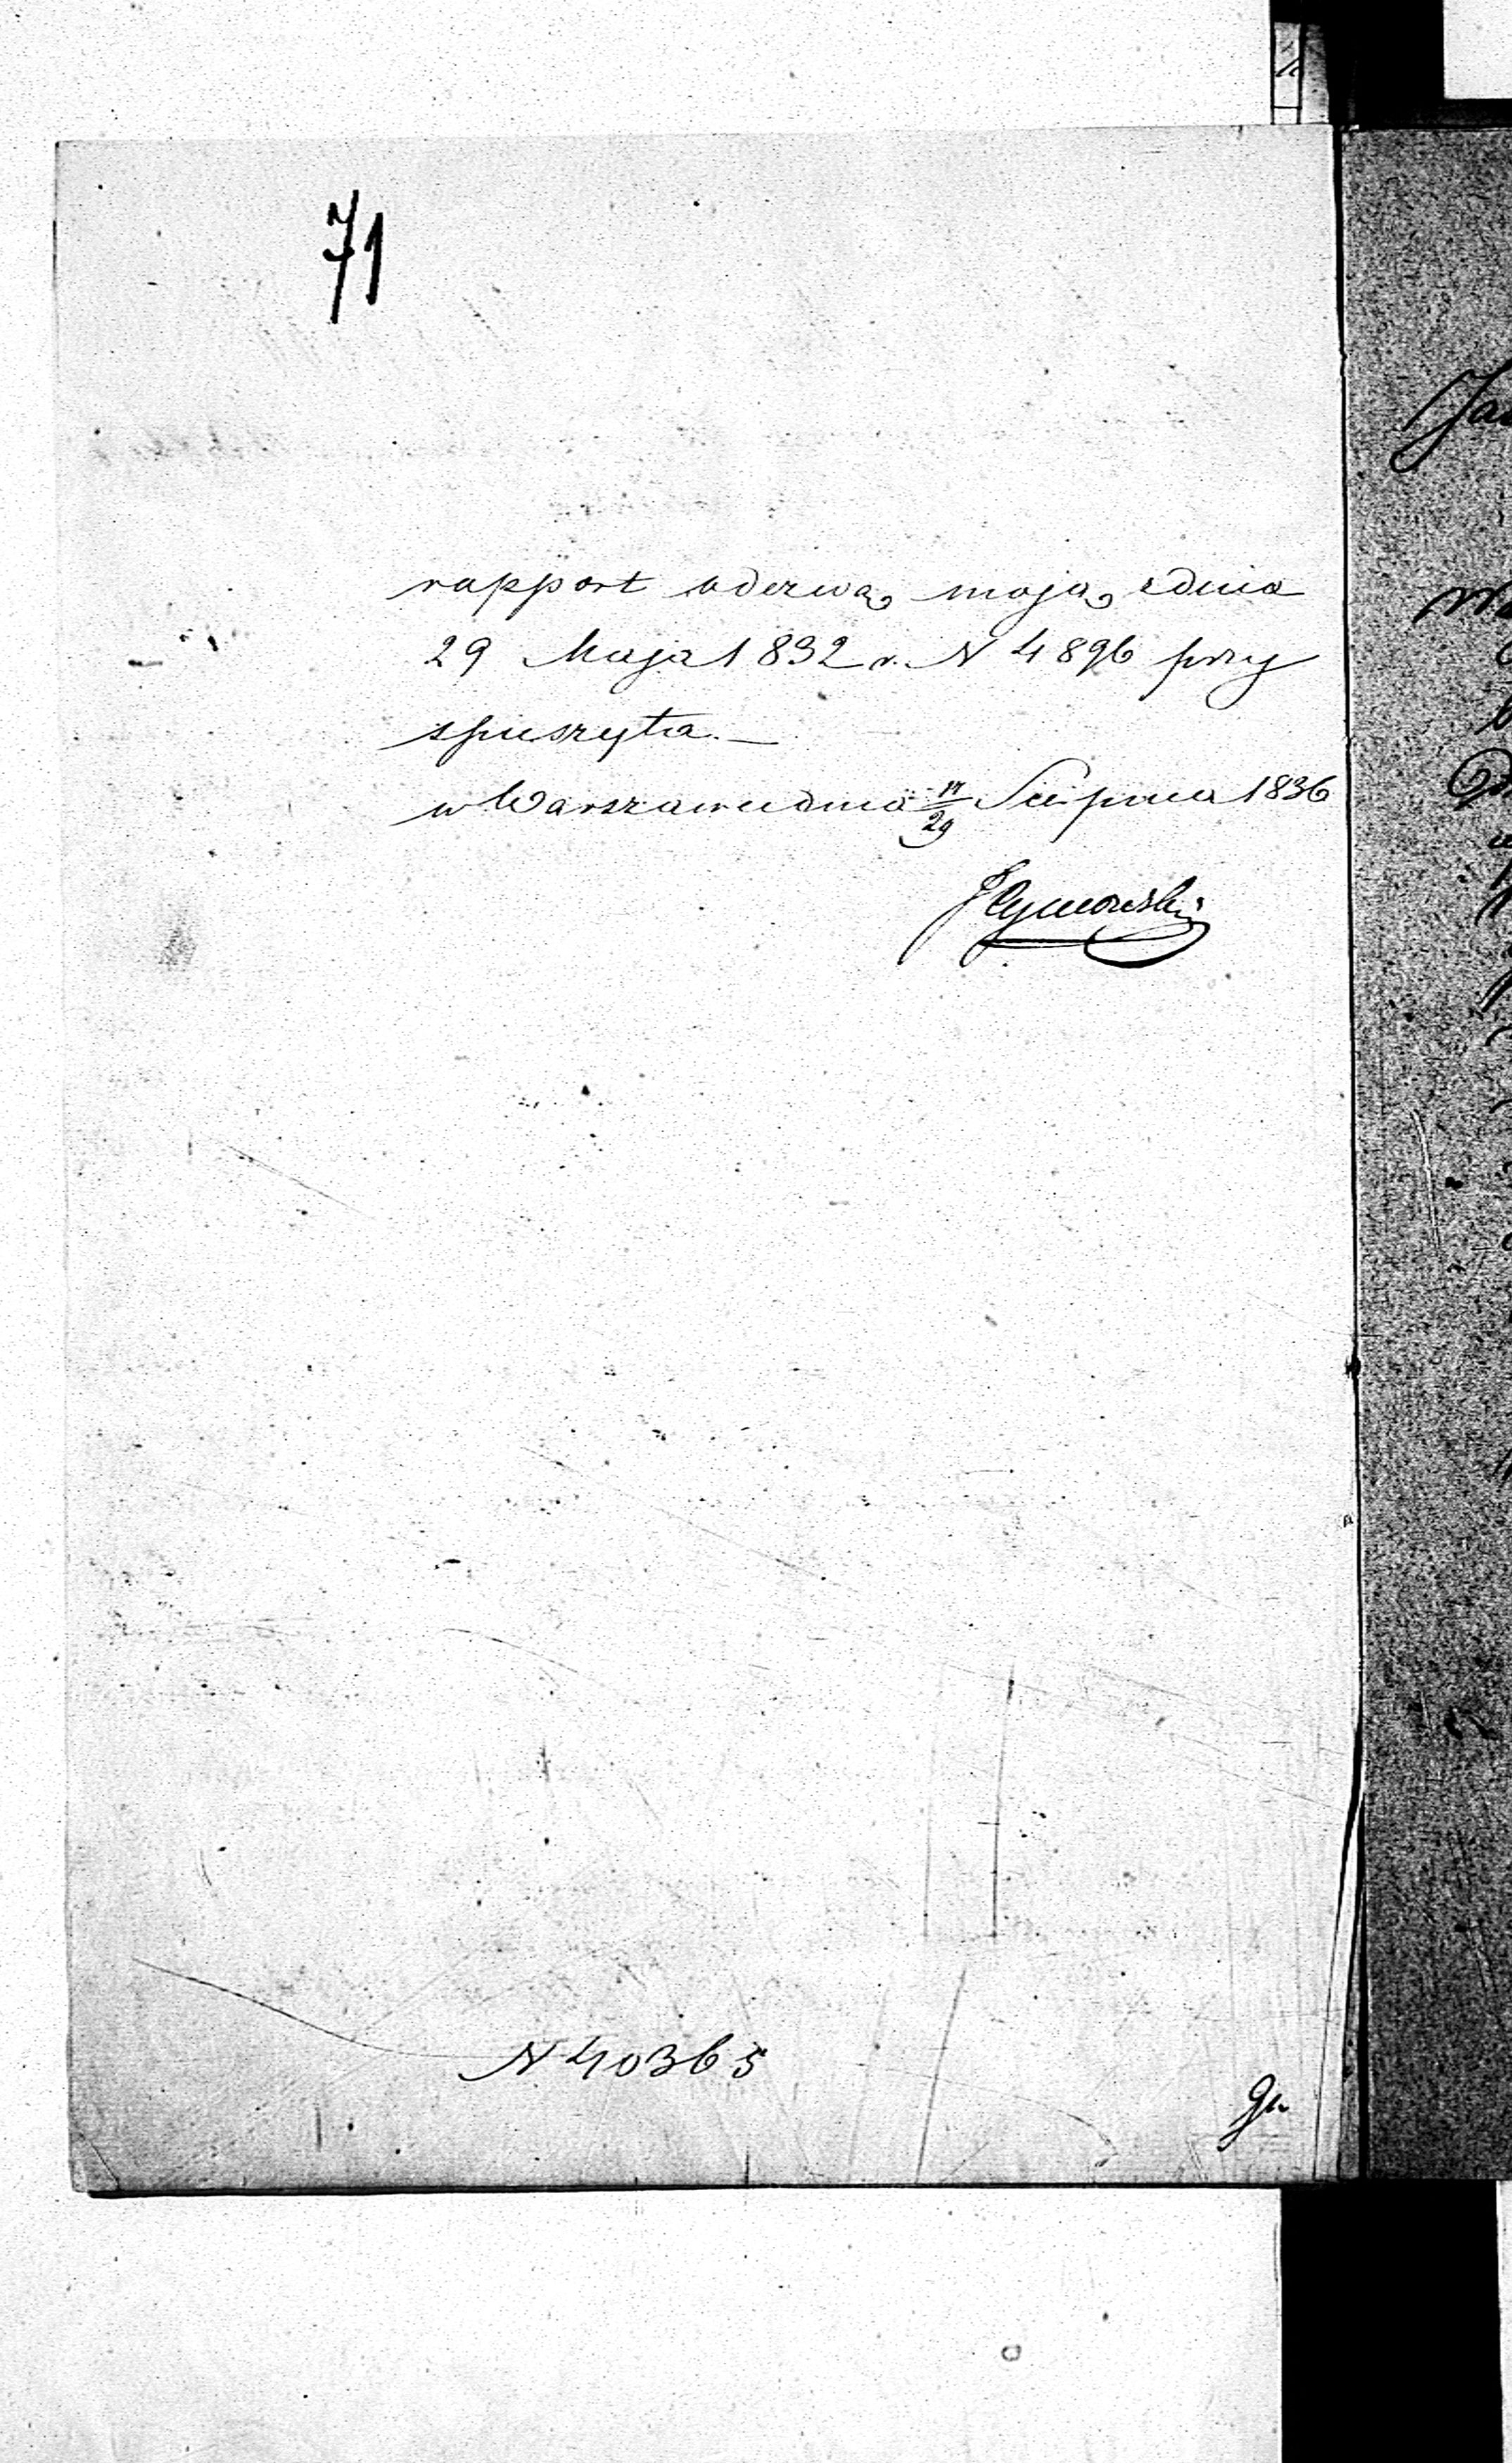 71
rapport odezwą moją z dnia
29 Maja 1832 r. N 4896 przy
spieszyła.—
w Warszawie dnia 17/29 Sierpnia 1836
N 40365